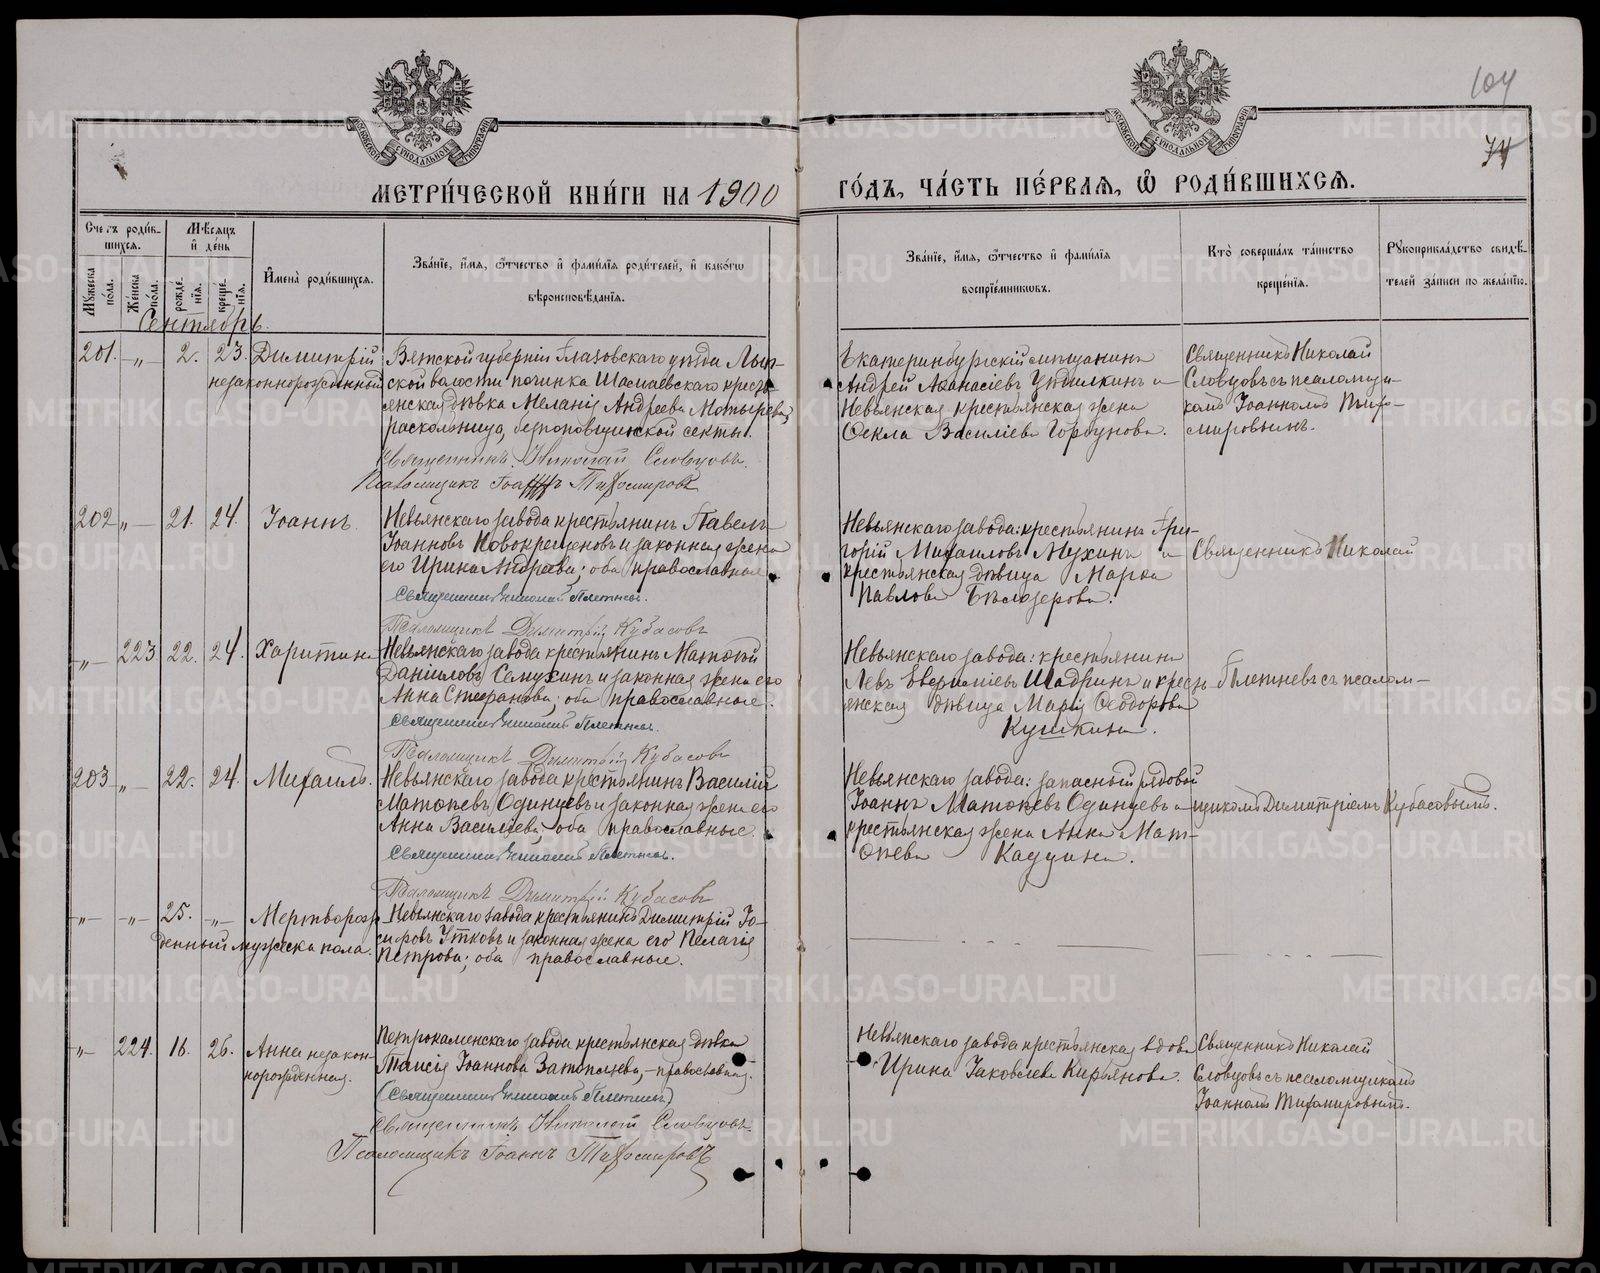 104
74
МОСКОВСКОЙ СѴНОДАЛЬНОЙ ТИПОГРАФІИ
МОСКОВСКОЙ СѴНОДАЛЬНОЙ ТИПОГРАФІИ
МЕТРИ́ЧЕСКОЙ КНИ́ГИ НА 1900
ГО́ДЪ, ЧА́СТЬ ПЕ́РВАѦ, Ѿ РОДИ́ВШИХСѦ.
Счетъ роди́в-
шихсѧ.
Мѣсѧцъ
и҆ де́нь
Мꙋжеска
по́ла.
Же́нска
по́ла.
рожде́-
нїѧ.
креще́-
нїѧ.
И҆мена̀ роди́вшихсѧ.
Зва́нїе, и҆́мѧ, ѻ҆́тчество и҆ фами́лїѧ роди́телей, и҆ како́гѡ
вѣроисповѣ́данїѧ.
Зва́нїе, и҆́мѧ, ѻ҆́тчество и҆ фами́лїѧ
воспрїе́мникѡвъ.
Кто̀ соверша́лъ та́инство
креще́нїѧ.
Рꙋкоприкла́дство свидѣ́-
телей за́писи по жела́нїю.
Сентябрь.
201. „ 2. 23. Димитрій
незаконнорожденный
Вятской губерніи Глазовскаго уѣзда Лып-
ской волости починка Шасмаевскаго кресть-
янская дѣвка Меланія Андреева Мотырева,
раскольница, безпоповщинской секты.
Священникъ Николай Словцовъ.
Псаломщикъ Іоаннъ Тихомировъ
Екатеринбургскій мѣщанинъ
Андрей Аѳанасіевъ Удилкинъ и
Невьянская крестьянская жена
Ѳекла Василіева Горбунова.
Священникъ Николай
Словцовъ съ псаломщи-
комъ Іоанномъ Тихо-
мировымъ.
202 „ 21. 24. Іоаннъ
Невьянскаго завода крестьянинъ Павелъ
Іоанновъ Новокрещеновъ и законная жена
его Ирина Андреева; оба православные.
Священникъ Николай Плетневъ.
Псаломщикъ Димитрій Кубасовъ
Невьянскаго завода: крестьянинъ Гри-
горій Михаиловъ Мухинъ и
крестьянская дѣвица Марѳа
Павлова Бѣлозерова.
Священникъ Николай
„ 223 22. 24. Харитина
Невьянскаго завода крестьянинъ Матѳей
Даніиловъ Семухинъ и законная жена его
Анна Стефанова; оба православные.
Священникъ Николай Плетневъ.
Псаломщикъ Димитрій Кубасовъ
Невьянскаго завода: крестьянинъ
Левъ Шадринъ и кресть-
янская дѣвица Марія Ѳеодорова
Кушкина.
Плетневъ съ псалом-
203 „ 22. 24. Михаилъ.
Невьянскаго завода крестьянинъ Василій
Матѳіевъ Одинцевъ и законная жена его
Анна Василіева; оба православные.
Священникъ Николай Плетневъ.
Псаломщикъ Димитрій Кубасовъ
Невьянскаго завода: запасный рядовой
Іоаннъ Матѳіевъ Одинцевъ и
крестьянская жена Анна Мат-
ѳіева Кадцина.
щикомъ Димитріемъ Кубасовымъ.
„ „ 25. „ Мертворож-
денный мужеска пола.
Невьянскаго завода крестьянинъ Димитрій Іо-
сифовъ Утковъ и законная жена его Пелагія
Петрова; оба православные.
„ 224. 16. 26. Анна незакон-
норожденная.
Петрокаменскаго завода крестьянская дѣвка
Таисія Іоаннова Затѣплѣева, – православная.
(Священникъ Николай Плетневъ)
Священникъ Николай Словцовъ.
Псаломщикъ Іоаннъ Тихомировъ
Невьянскаго завода крестьянская вдова
Ирина Іаковлева Кирьянова.
Священникъ Николай
Словцовъ съ псаломщикомъ
Іоанномъ Тихомировымъ.
METRIKI.GASO-URAL.RU